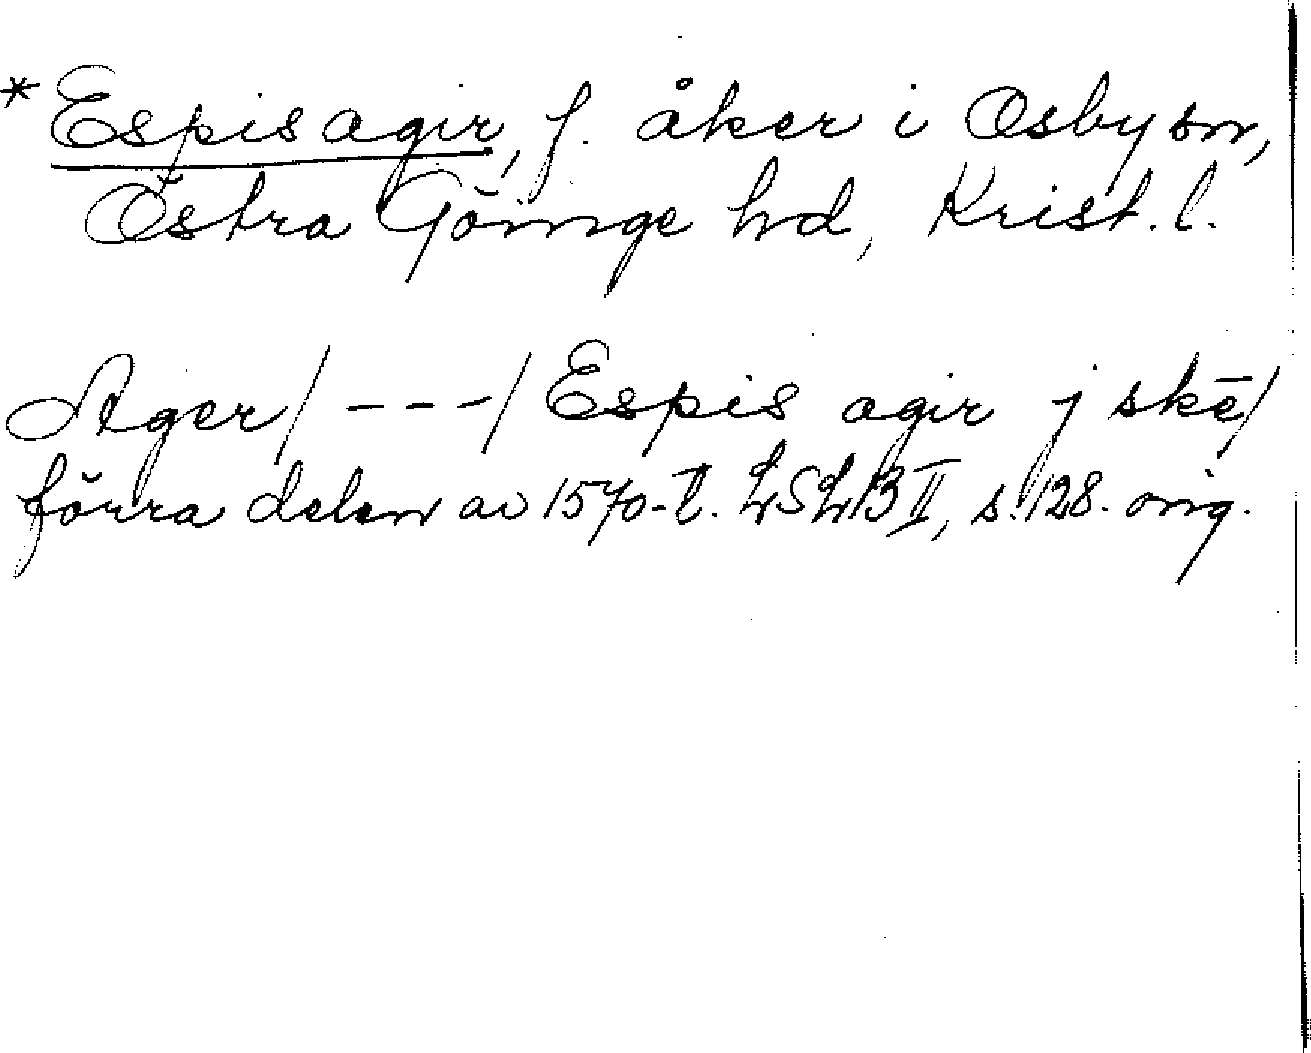 * Espisagir, f. åker i Osby sn,
Östra Göinge hd, Krist. l.
Ager/ --- / Espis agir j skē/
förra delen av 1570-t. LSLB II, s. 128. orig.